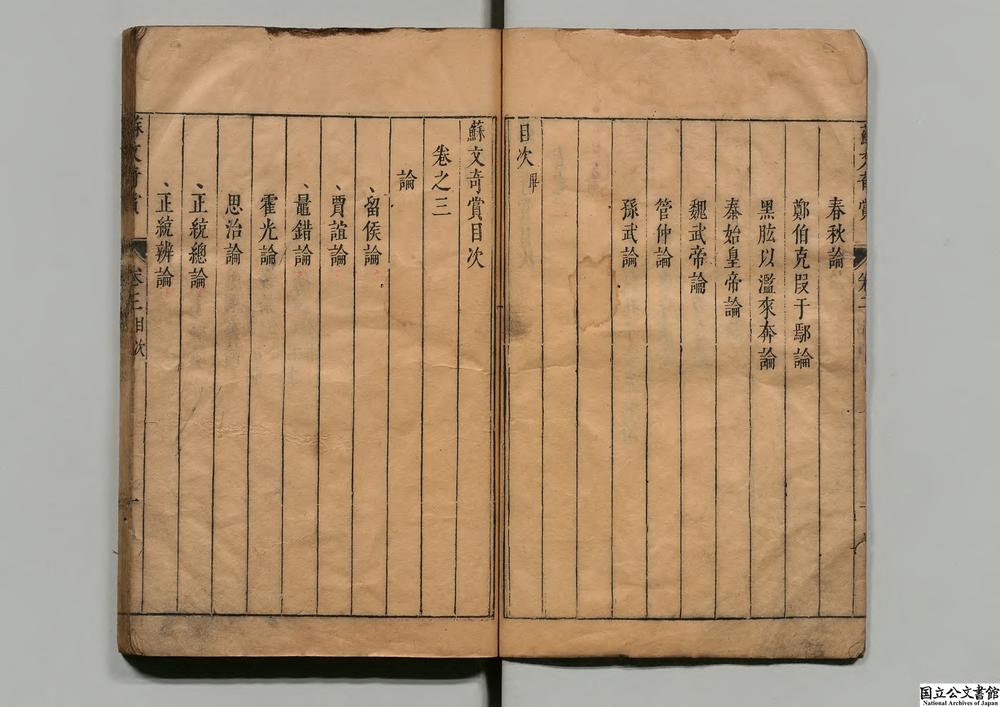 春秋論
鄭伯克段于鄢論
黑肱以濫來奔論
秦始皇帝論
魏武帝論
管仲論
孫武論
目次
蘇文奇賞目次
卷之三
論
留侯論
賈誼論
鼂錯論
霍光論
思治論
正統總論
正統辨論
蘇文奇賞
卷三目次
一
国立公文書館
National Archives of Japan